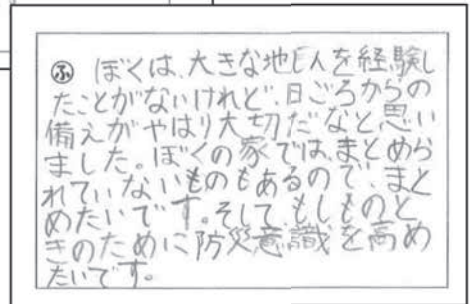 ㋫ ぼくは、大きな地しんを経験し
たことがないけれど、日ごろからの
備えがやはり大切だなと思い
ました。ぼくの家では、まとめら
れていないものもあるので、まと
めたいです。そしてもしものと
きのために防災意識を高め
たいです。